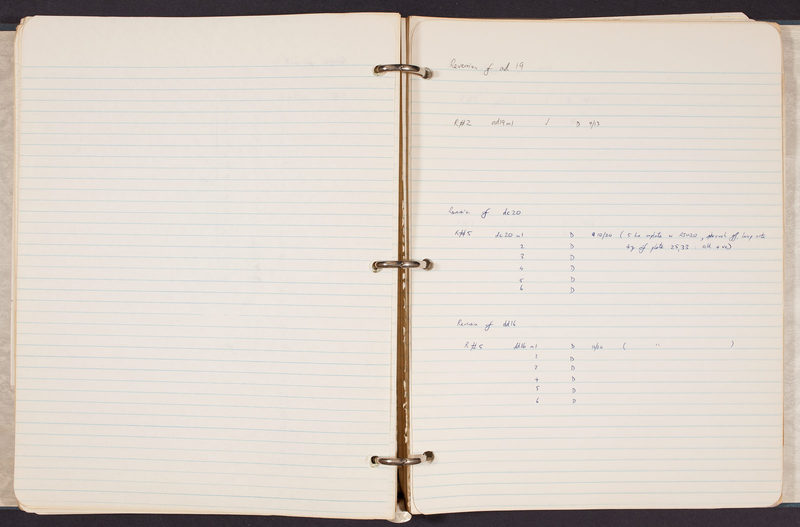 Reversion of ad 19
R#2 ad19 m1 / D 9/13
Reversion of dc20
R#5 dc20 m1 D 10/20 ( 5 hr
2 D
3 D
4 D
5 D
6 D
by of plate 25, 33 : all +ve)
Reversion of dd16
R#5 dd16 m1 D 10/20 ( " )
2 D
3 D
4 D
5 D
6 D